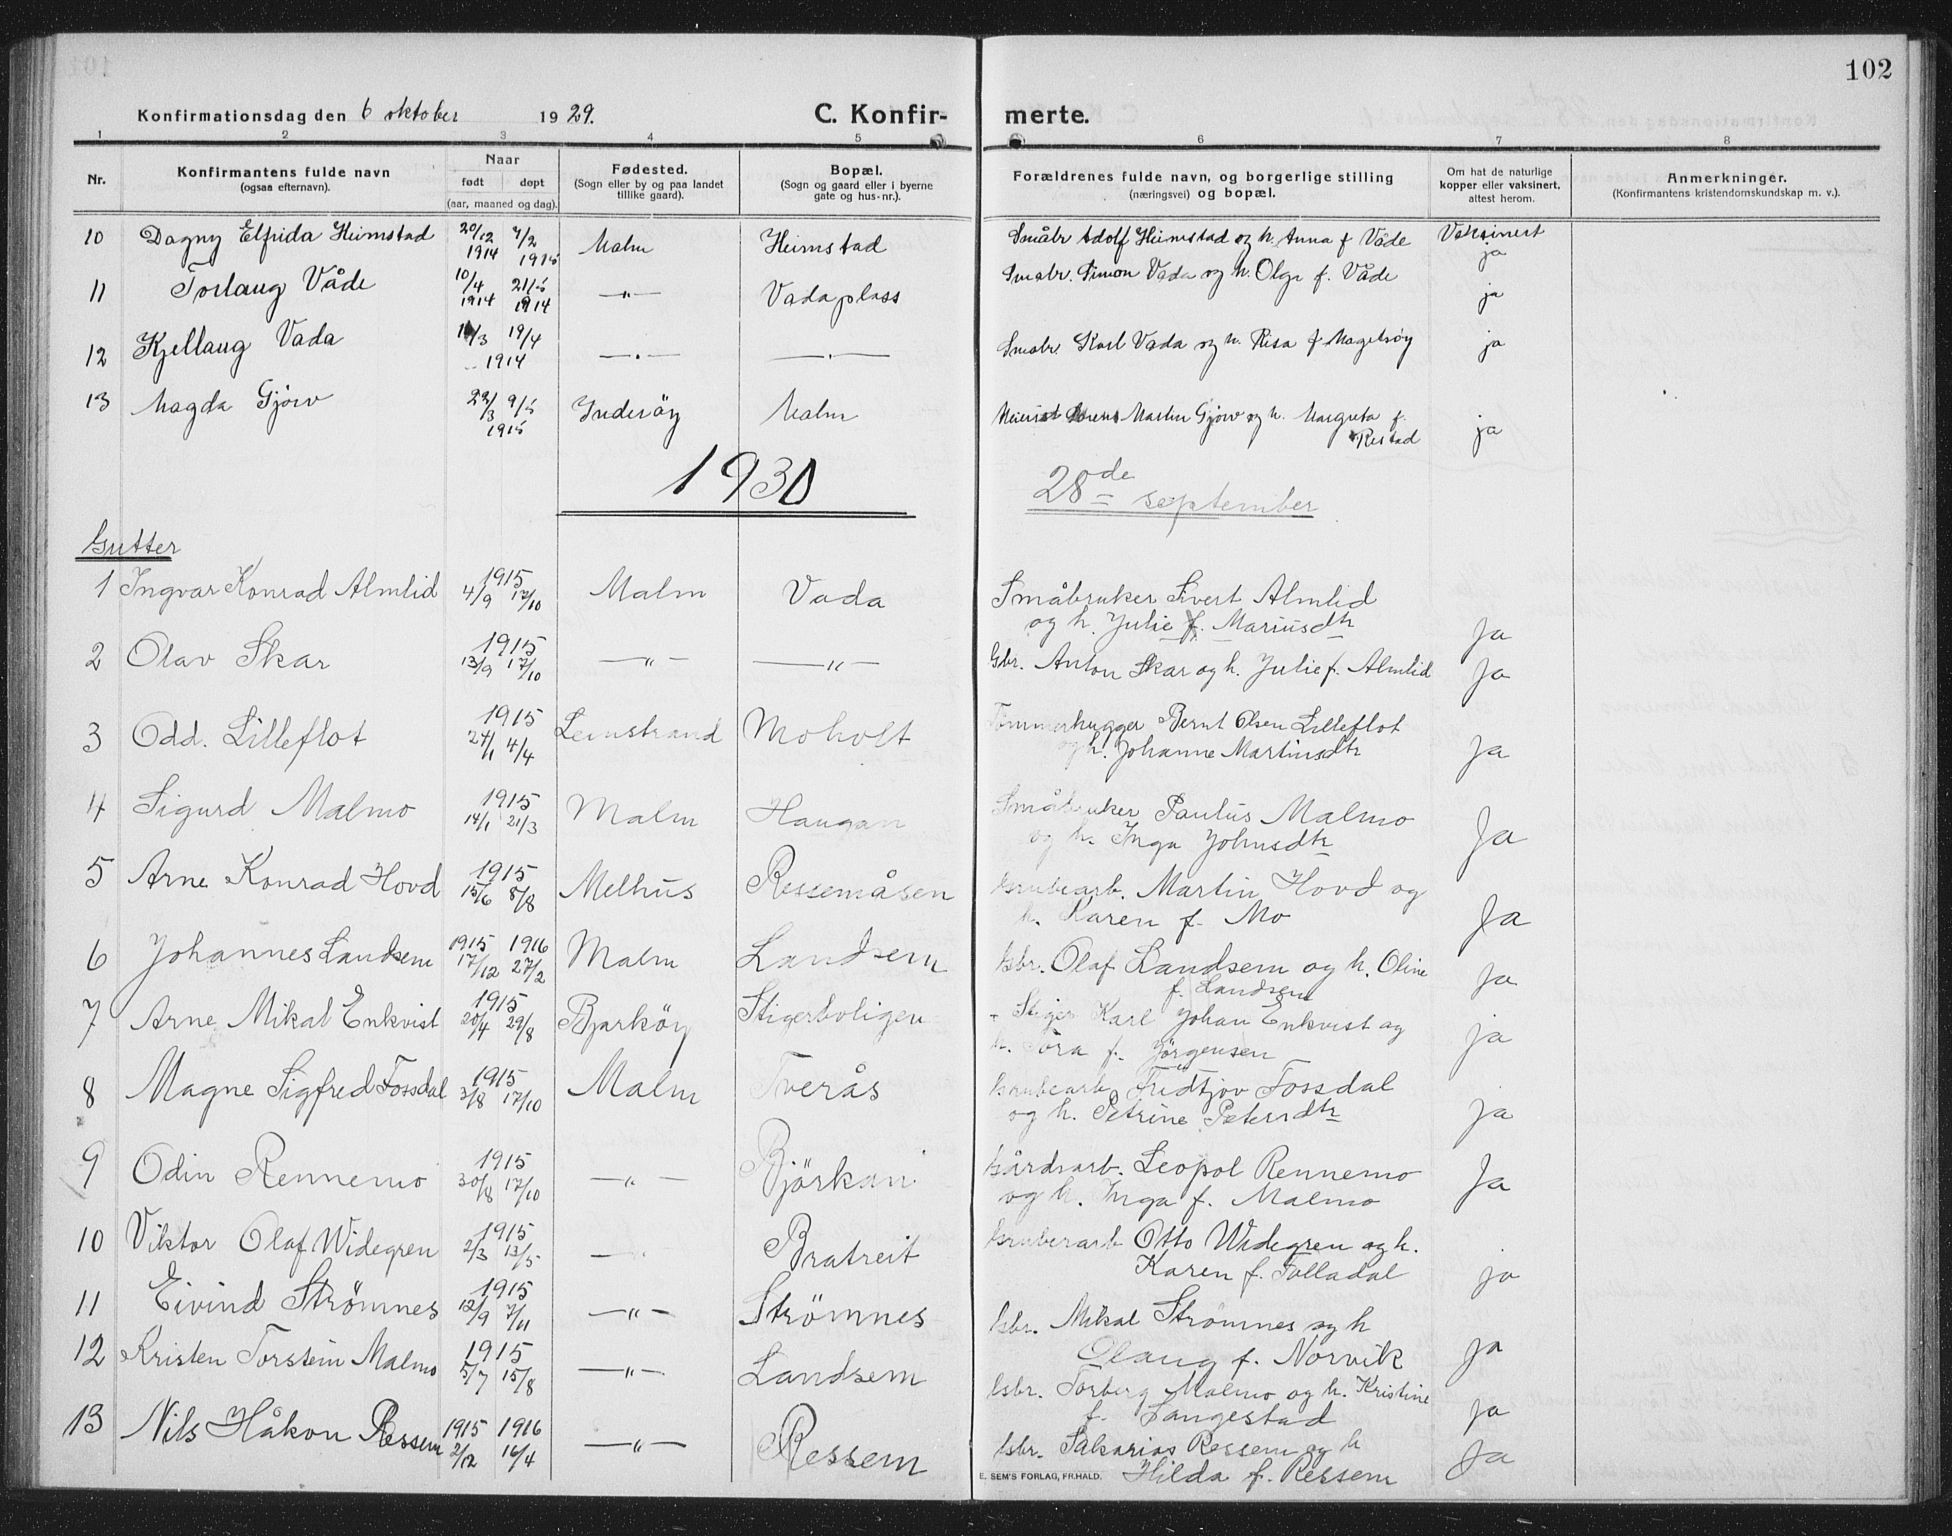 102
Konfirmationsdag den 6 oktober 1929. C. Konfirmerte.
1 2 3 4 5 6 7 8
Nr. Konfirmantens fulde navn (ogsaa efternavn). Naar født døpt (aar, maaned og dag). Fødested. (Sogn eller by og paa landet tillike gaard). Bopæl. (Sogn og gaard eller i byerne gate og hus-nr.). Forældrenes fulde navn, og borgerlige stilling (næringsvei) og bopæl. Om hat de naturlige kopper eller vaksinert, attest herom. Anmerkninger. (Konfirmantens kristendomskundskap m. v.).
10 Dagny Elfrida Heimstad 20/12 1914 7/2 1915 Malm Heimstad Småbr Adolf Heimstad og h. Anna f Våde Vaksinert ja
11 Torlaug Våde 10/4 1914 21/5 1914 —"— Vadaplass Småbr. Simon Vada og h. Olga f. Våde ja
12 Kjellaug Vada /3 19/4 1914 —"— —"— Småbr. Karl Vada og h. Risa f Magetrøy ja
13 Magda Gjørv 22/3 9/5 1915 Inderöy Malm Meierist Lorens Martin Gjørv og h. Margreta f. Restad ja
1930 28de september
Gutter
1 Ingvar Konrad Almlid 1915 4/9 17/10 Malm Vada Småbruker Sivert Almlid
og h. Julie f. Mariusdtr Ja
2 Olav Skar 1915 13/9 17/10 —"— —"— Gbr. Anton Skar og h. Julie f. Almlid Ja
3 Odd. Lilleflot 1915 27/1 4/4 Leinstrand Moholt Tömmerhugger Bernt Olsen Lilleflot
og h. Johanne Martinsdtr Ja
4 Sigurd Malmo 1915 14/1 21/3 Malm Haugan Småbruker Paulus Malmo
og h. Inga Johnsdtr Ja
5 Arne Konrad Hovd 1915 15/6 8/8 Melhus Ressemåsen Grubearb. Martin Hovd og
h. Karen f. Mo Ja
6 Johannes Landsem 1915 17/12 1916 27/2 Malm Landsem Gbr. Olaf Landsem og h. Oline
f. Landsem Ja
7 Arne Mikal Enkvist 1915 20/4 29/8 Bjarköy Stigerboligen Stiger Karl Johan Enkvist og
h. Tora f. Jörgensen ja
8 Magne Sigfred Fossdal 1915 3/8 17/10 Malm Tverås Grubearb Fridtjov Fossdal
og h. Petrine Petersdtr Ja
9 Odin Rennemo 1915 30/8 17/10 —"— Björkan Gårdsarb. Leopol Rennemo
og h. Inga f. Malmo Ja
10 Viktor Olaf Widegren 1915 2/3 13/5 — Bratreit Gruberarb Otto Widegren og h.
Karen f. Folladal ja
11 Eivind Strømnes 1915 12/9 7/11 —"— Strömnes Gbr. Mikal Strömnes og h
Olaug f. Norvik Ja
12 Kristen Torstein Malmo 1915 5/7 15/8 —"— Landsem Gbr. Torberg Malmo og h. Kristine
f. Langestad Ja
13 Nils Håkon Ressem 1915 2/12 1916 16/4 —"— Ressem Gbr. Sakarias Ressem og h
Hilda f. Ressem Ja
E. SEM'S FORLAG, FR.HALD.